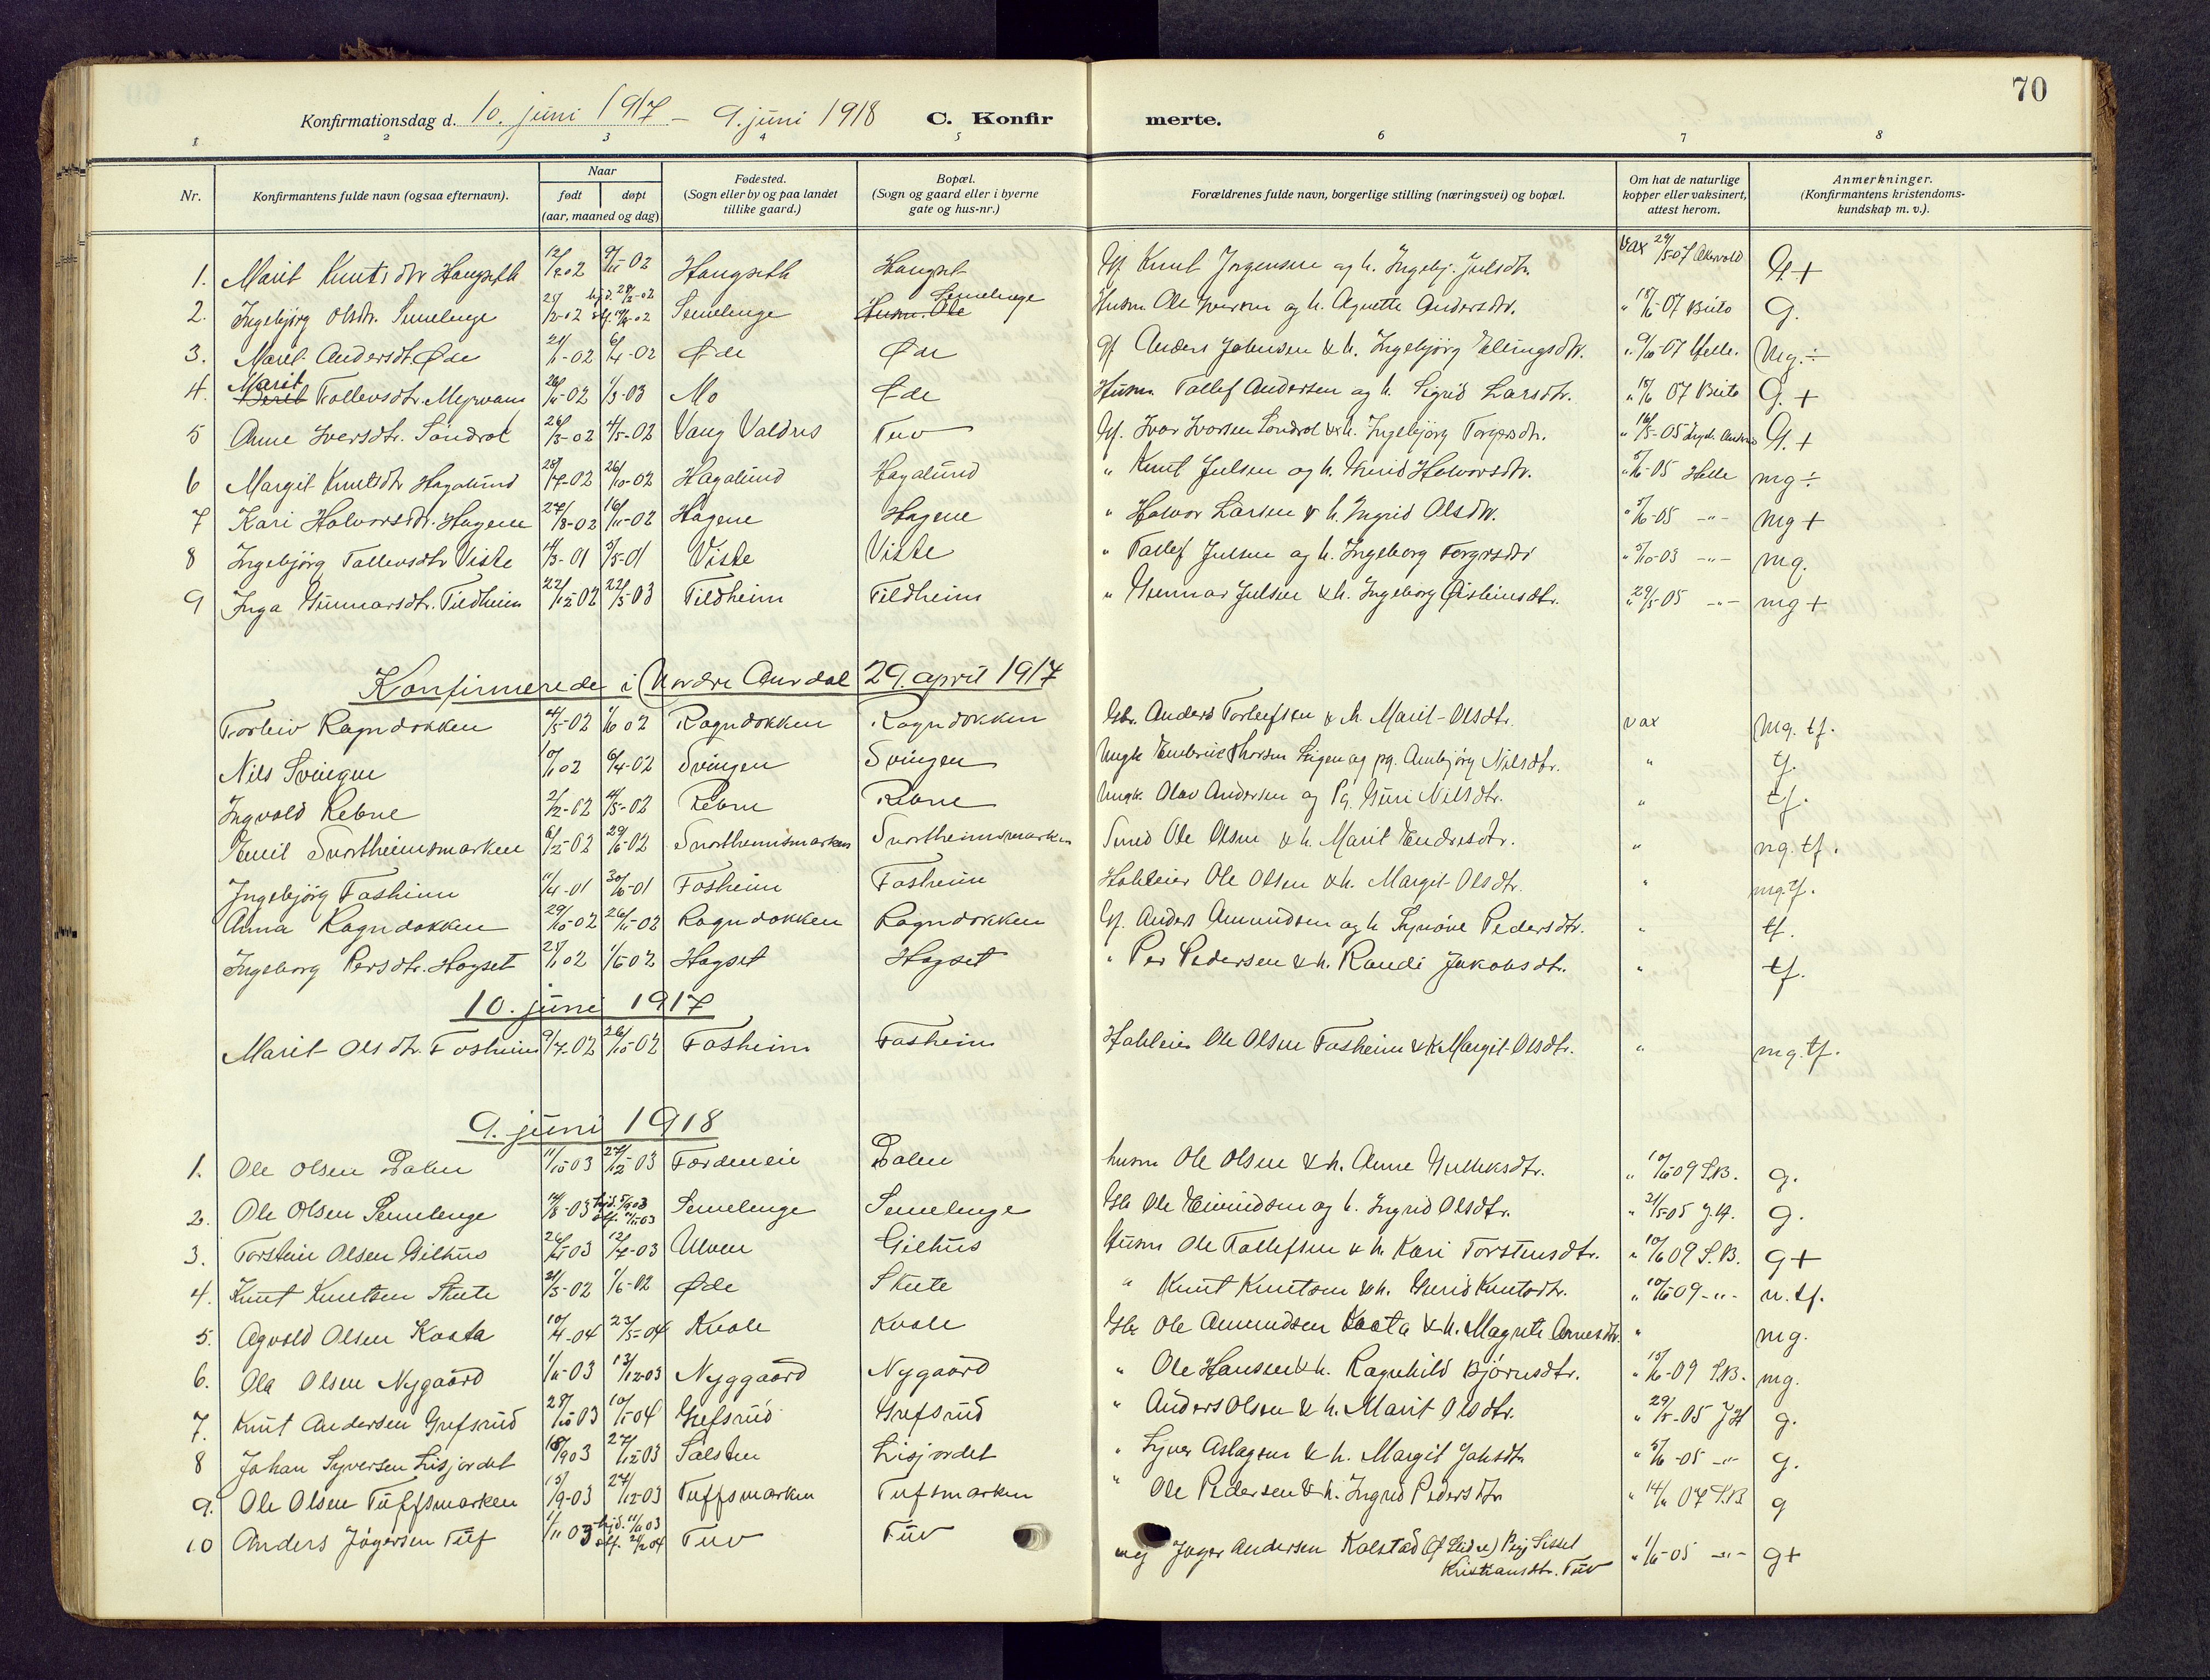 70
Konfirmationsdag d. 10. juni 1917 - 9. juni 1918 C. Konfirmerte.
1 2 3 4 5 6 7 8
Nr. Konfirmantens fulde navn (ogsaa efternavn). Naar født døpt (aar, maaned og dag) Fødested. (Sogn eller by og paa landet tillike gaard.) Bopæl. (Sogn og gaard eller i byerne gate og hus-nr.) Forældrenes fulde navn, borgerlige stilling (næringsvei) og bopæl. Om hat de naturlige kopper eller vaksinert, attest herom. Anmerkninger. (Konfirmantens kristendomskundskap m. v.).
1. Marit Knutsdtr Haugseth Haugseth Haugset Gf. Knut Jørgensen og h. Ingebj. Julsdtr. vax G +
2. Ingebjørg Olsdtr. Semelenge Semelenge Semelenge Husm. Ole Iversen og h. Agnette Andersdtr. " 15/6-07 Beito G.
3. Marit Andersdt. Øde 21/1-02 6/4-02 Øde Øde Gf Anders Johnsen & h. Ingebjörg Ellingsdtr. " 9/10-07 Helle. Mg. ÷
4. Marit Tollevsdtr. 1/3-03 Mo Øde Husm. Tollef Andersen og h. Sigrid Larsdtr. " 15/6 07 Beito G. +
5 Anne Iversdtr. Söndrol 26/3-02 4/5-02 Vang Valdres Tuv Gf. Ivar Iversen Söndrol & h. Ingebjörg Torgersdtr. G. +
6 Margit Knutsdtr Hagalund 28/7-02 26/10-02 Hagalund Hagalund " Knut Julsen og h. Gurid Halvorsdtr. " 5/6-05 Helle mg ÷
7 Kari Halvorsdtr. Hagene 27/8-02 16/11-02 Hagene Hagene " Halvor Larsen & h. Ingrid Olsdtr. " 5/6-05 -"- mg +
8 Ingebjörg Tollevsdtr Viste 14/3-01 5/5-01 Viste Viste " Tollef Julsen og h. Ingeborg Torgersdtr " 5/10-03 -"- mg.
9 Inga Gunnarsdtr. Tildheim 22/12-02 22/3-03 Tildheim Tildheim " Gunnar Julsen & h. Ingeborg Øisteinsdtr. " 29/5-05 -"- mg +
Konfirmerede i Nordre Aurdal 29. april 1917
Torleiv Ragndokken 4/5-02 1/6 02 Ragndokken Ragndokken Gbr. Anders Torleifsen & h. Marit Olsdtr. vax Mg. tf.
Nils Svingen 10/1 02 6/4-02 Svingen Svingen Ungk Embrik Thorsen og pg. Ambjörg Nilsdtr. " tf.
Ingvald Rebne 2/2-02 4/5-02 Rebne Rebne Ungk. Olav Andersen og Pg. Guri Nilsdtr. " tf.
Emil Snortheimsmarken 6/2-02 29/6-02 Snortheimsmarken Snortheimsmarken Smed Ole Olsen & h. Marit Endresdtr. " ng. tf.
Ingebjörg Fosheim 11/4-01 30/6-01 Fosheim Fosheim Ole Olsen & h. Margit Olsdtr. " mg. tf.
Anna Ragndokken 29/10-02 26/11-02 Ragndokken Ragndokken Gf. Anders Amundsen og h Synöve Pedersdtr. " tf.
Ingeborg Persdtr. Hogset 25/1 02 1/6 02 Hogset Hogset " Per Pedersen & h. Randi Jakobsdtr. " tf.
10. juni 1917
Marit Olsdtr. Fosheim 9/7-02 26/10-02 Fosheim Fosheim Ole Olsen Fosheim & K. Margit Olsdtr. " mg. tf.
9. juni 1918
1. Ole Olsen Dalen 11/10 03 27/12 03 Dalen husm Ole Olsen & h. Anne Gulliksdtr. " 10/6 09 S.B. g.
2. Ole Olsen Semelenge Semelenge Semelenge Gbr Ole og h. Ingrid Olsdtr. " 21/5-05 J.H. g.
3. Torstein Olsen Gilhus 12/7-03 Ulven Gilhus Husm Ole Tollefsen & h Kari Torstensdtr. " 10/6 09 S.B. g +
4. Knut Knutsen Skute 21/3-02 1/6-02 Øde Skute " Knut Knutsen & h. Gurid Knutsdtr. " 10/6-09 -"- n. tf.
5. Agvald Olsen Kaata 10/4-04 23/5-04 Kvale Kvale Gbr Ole Amundsen Kaata & h. Magrete Arnesdtr. " mg.
6. Ola Olsen Nygaard 1/11-03 13/12-03 Nyggaard Nygaard " Ole Hansen & h. Ragnhild Björnsdtr. " 15/6-09 S.B. mg.
7. Knut Andersen Grefsrud 28/10 03 10/1-04 Grefsrud Grefsrud " Anders Olsen & h. Marit Olsdtr. " 29/5-05 JH g.
8 Johan Syversen Lisjordet 18/9 03 27/12 03 Lisjordet " Syver Aslagsen & h. Margit Jahsdtr " 5/6-05 -"- g.
9. Ole Olsen Tuffsmarken 15/9-03 27/12-03 Tuffsmarken Tufsmarken " Ole Pedersen & h. Ingrid Pedersdtr " 14/6 07 S.B. g
10 Anders Jögersen Tuf 1/11 03 Tuv Tuv ug Joger Andersen Kolstad Sissel Kristiansdtr. Tuv " 1/6-05 -"- g +